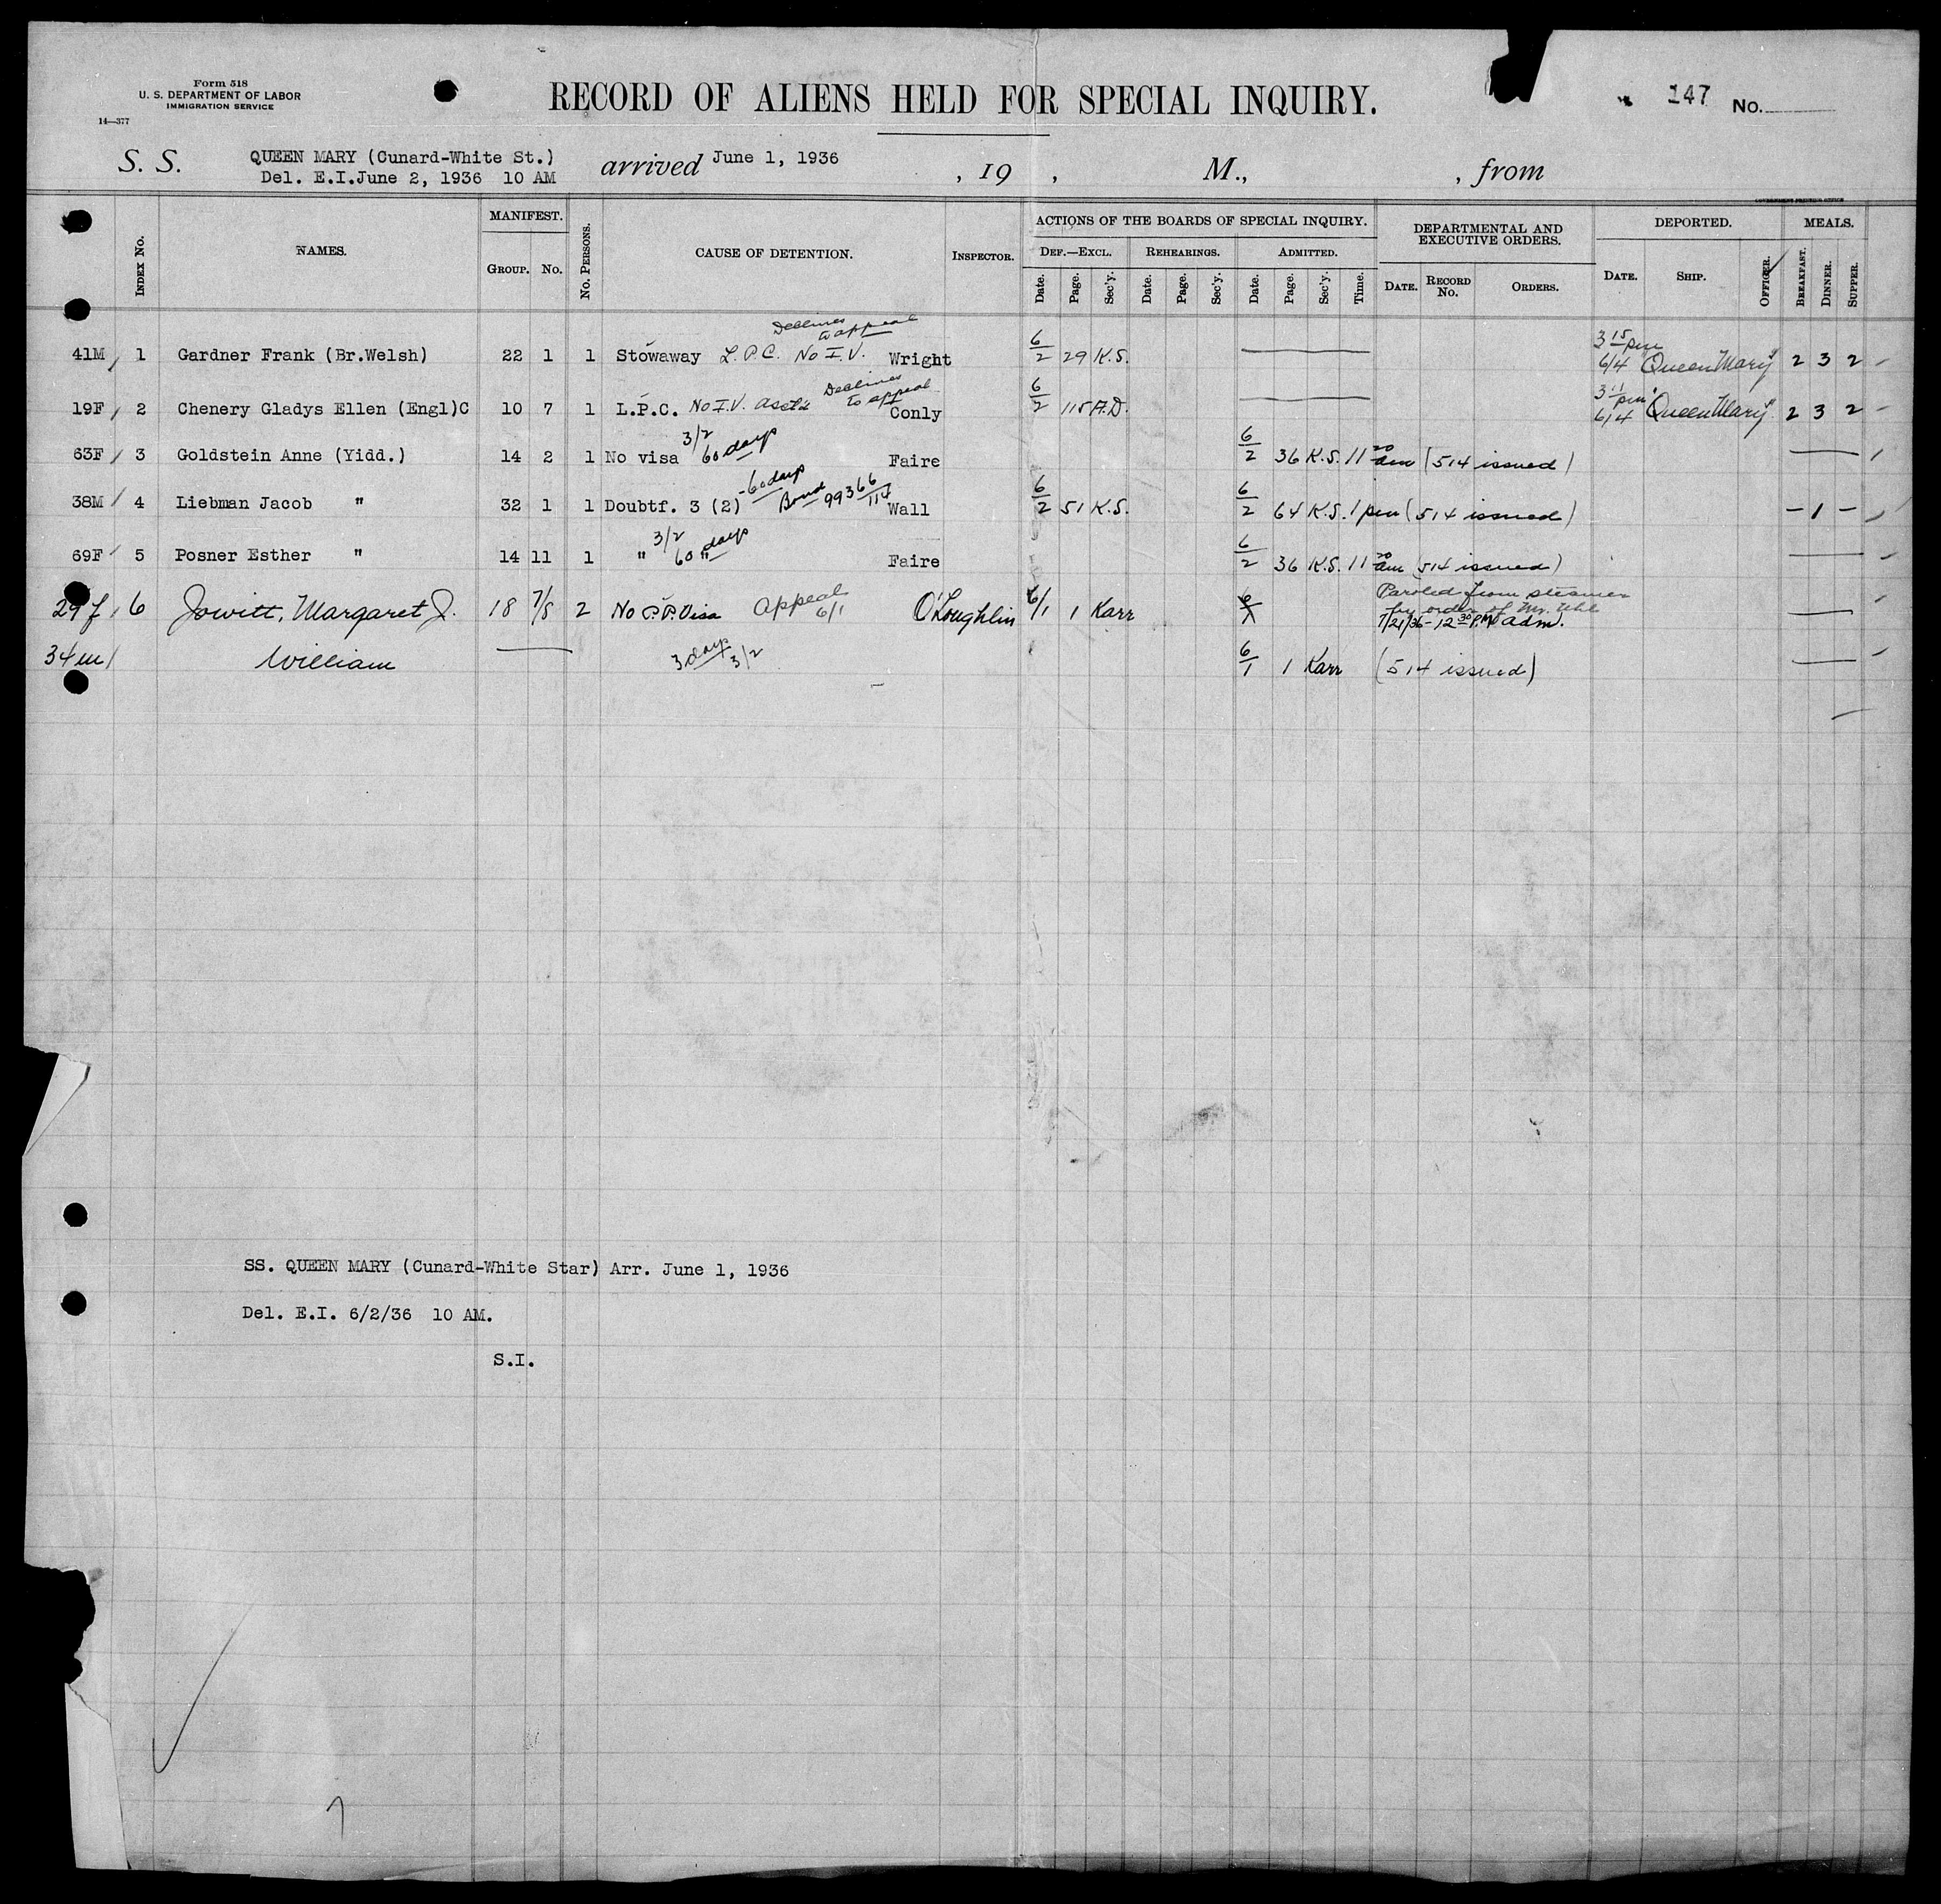 Form 518
U. S. DEPARTMENT OF LABOR
IMMIGRATION SERVICE
14—377
RECORD OF ALIENS HELD FOR SPECIAL INQUIRY.
147 No.
S. S. QUEEN MARY (Cunard-White St.) arrived June 1, 1936 , 19 , M., , from
Del. E.I.June 2, 1936 10 AM
GOVERNMENT PRINTING OFFICE
INDEX No. NAMES. MANIFEST. GROUP. No. No. PERSONS. CAUSE OF DETENTION. INSPECTOR. ACTIONS OF THE BOARDS OF SPECIAL INQUIRY. DEPARTMENTAL AND EXECUTIVE ORDERS. DEPORTED. MEALS.
DEF.—EXCL. REHEARINGS. ADMITTED.
Date. Page. Sec'y. Date. Page. Sec'y. Date. Page. Sec'y. Time. DATE. RECORD No. ORDERS. DATE. SHIP. OFFICER. BREAKFAST. DINNER. SUPPER.
Declines to appeal 3 15 pm
41M 1 Gardner Frank (Br.Welsh) 22 1 1 Stowaway L.P.C. No I.V. Wright 6/2 29 K.S. 6/4 Queen Mary" 2 3 2
Declines to appeal pm
19F 2 Chenery Gladys Ellen (Engl)C 10 7 1 L.P.C. No I.V. Conly 6/2 115 A.D. 6/4 "Queen Mary" 2 3 2
3/2
63F 3 Goldstein Anne (Yidd.) 14 2 1 No visa 60 days Faire 6/2 36 K.S. 11 20 am (514 issued)
-60 days
38M 4 Liebman Jacob " 32 1 1 Doubtf. 3 (2) Bond 99366/114 Wall 6/2 51 K.S. 6/2 64 K.S. 1 pm (514 issued) - 1 -
3/2
69F 5 Posner Esther " 14 11 1 " 60 days " Faire 6/2 36 K.S. 11 20 am (514 issued)
Paroled from steamer
by order of Mr. Uhl
29f 6 Jowitt, Margaret J. 18 7/8 2 No P.P. Visa Appeal 6/1 O'Loughlin 6/1 1 Karr 7/21/36 - 12 30 P.M. adm.
34m William 3 days 3/2 6/1 1 Karr (514 issued)
SS. QUEEN MARY (Cunard-White Star) Arr. June 1, 1936
Del. E.I. 6/2/36 10 AM.
S.I.